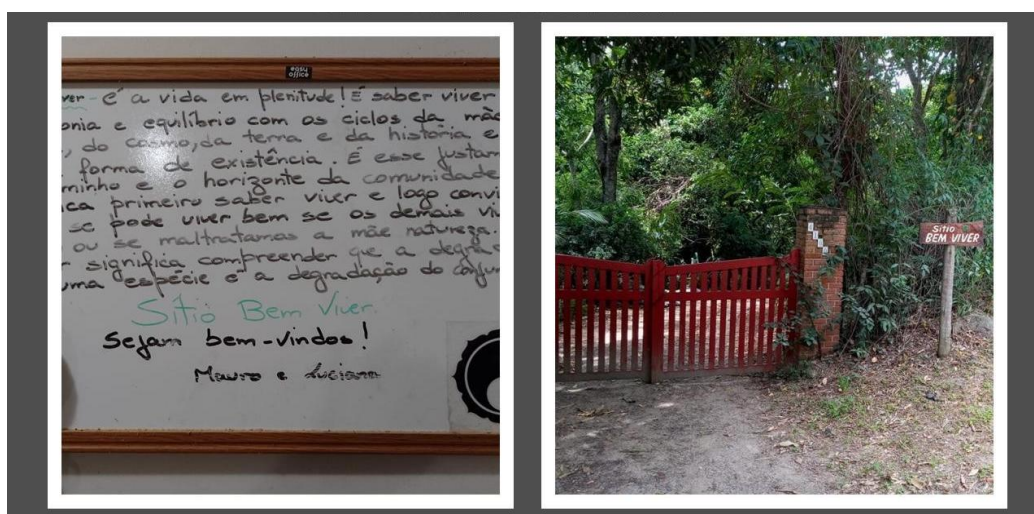 easy
office
ver - é a vida em plenitude! É saber viver
onia e equilíbrio com os ciclos da mãe
, do cosmo, da terra e da história e
forma de existência. É esse justam
minho e o horizonte da comunidade
ica primeiro saber viver e logo convi
se pode viver bem se os demais viv
ou se maltratamos a mãe natureza.
r significa compreender que a degra
uma espécie é a degradação do conjun
Sítio Bem Viver.
Sejam bem-vindos!
Mauro e Luciana
Sítio
BEM VIVER